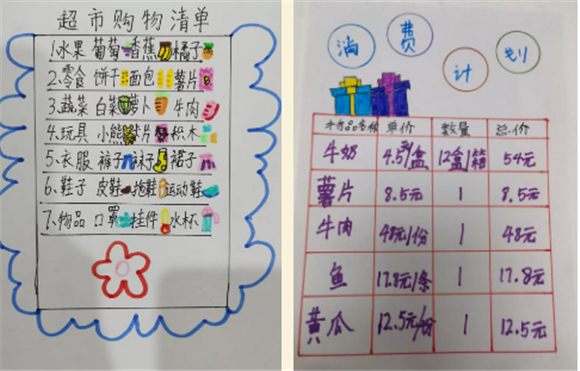 超市购物清单
1.水果 葡萄 香蕉 橘子
2.零食 饼干 面包 薯片
3.蔬菜 白菜 萝卜 牛肉
4.玩具 小熊 卡片 积木
5.衣服 裤子 袜子 裙子
6.鞋子 皮鞋 拖鞋 运动鞋
7.物品 口罩 挂件 水杯
消费计划
商品名称 单价 数量 总价
牛奶 4.5元/盒 12盒/箱 54元
薯片 8.5元 1 8.5元
牛肉 48元/份 1 48元
鱼 17.8元/条 1 17.8元
黄瓜 12.5元/份 1 12.5元